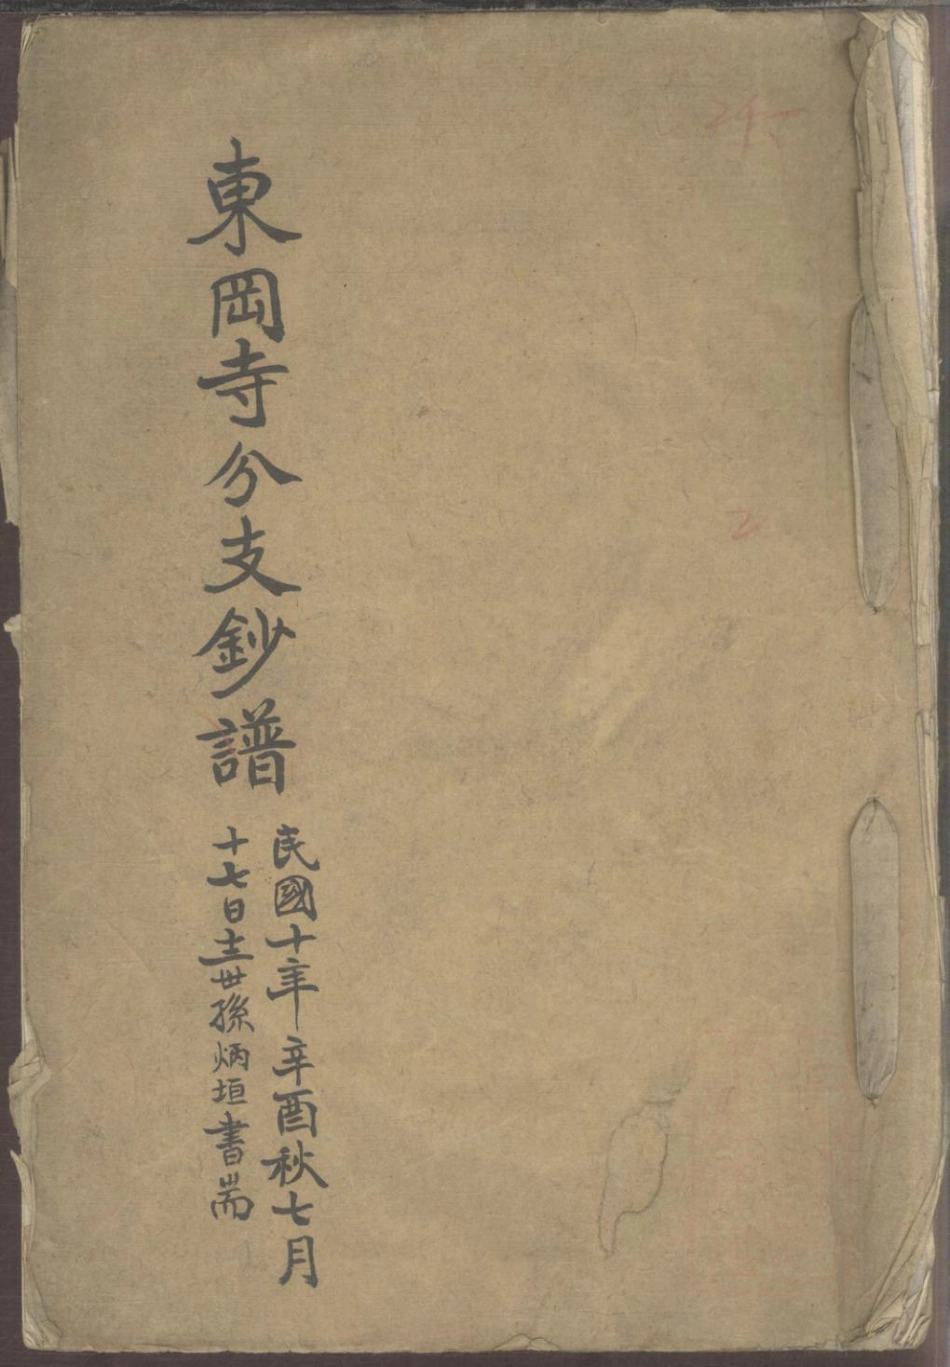 東岡寺分支鈔譜
民國十年辛酉秋七月
十七日十三世孫炳垣書耑